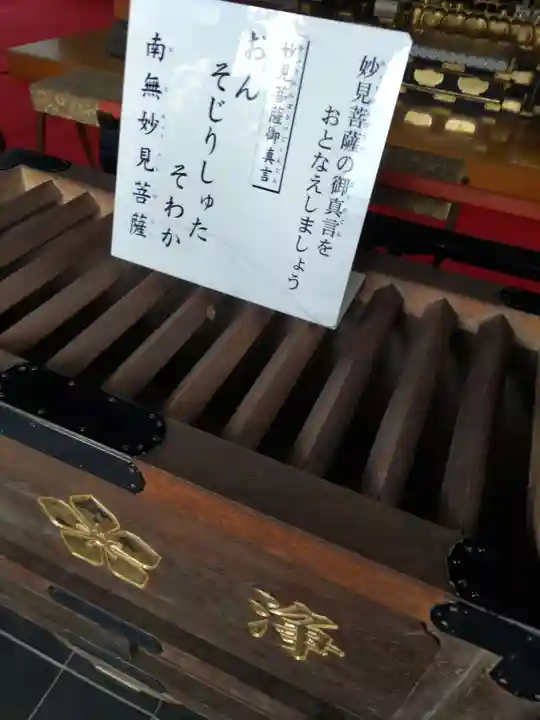 妙見菩薩の御真言を
おとなえしましょう
妙見菩薩御真言
おん
そじりしゅた
そわか
南無妙見菩薩
浄